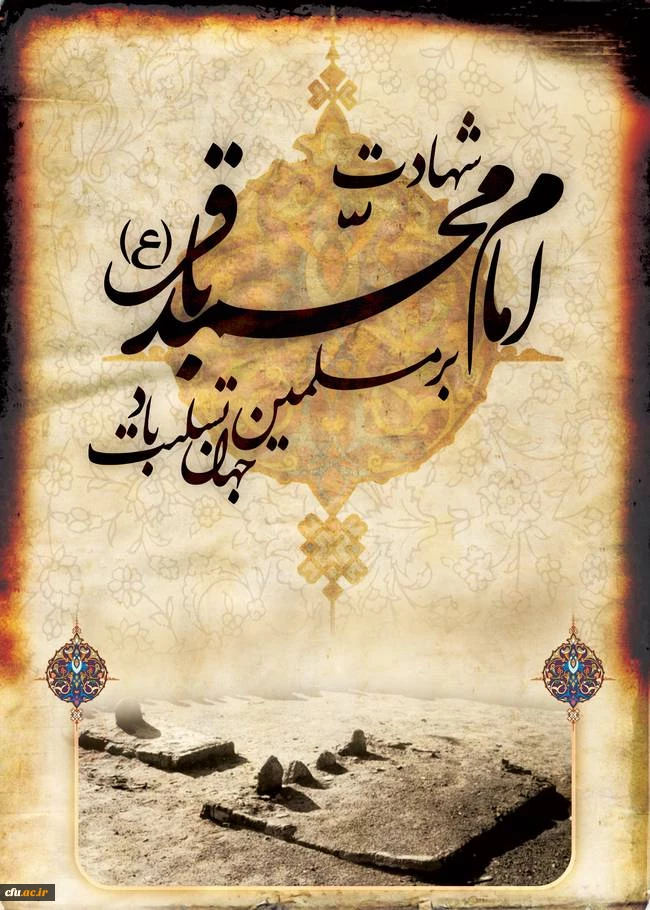 شهادت
امام محمّد باقر (ع)
بر مسلمین
جهان تسلیت باد
cfu.ac.ir